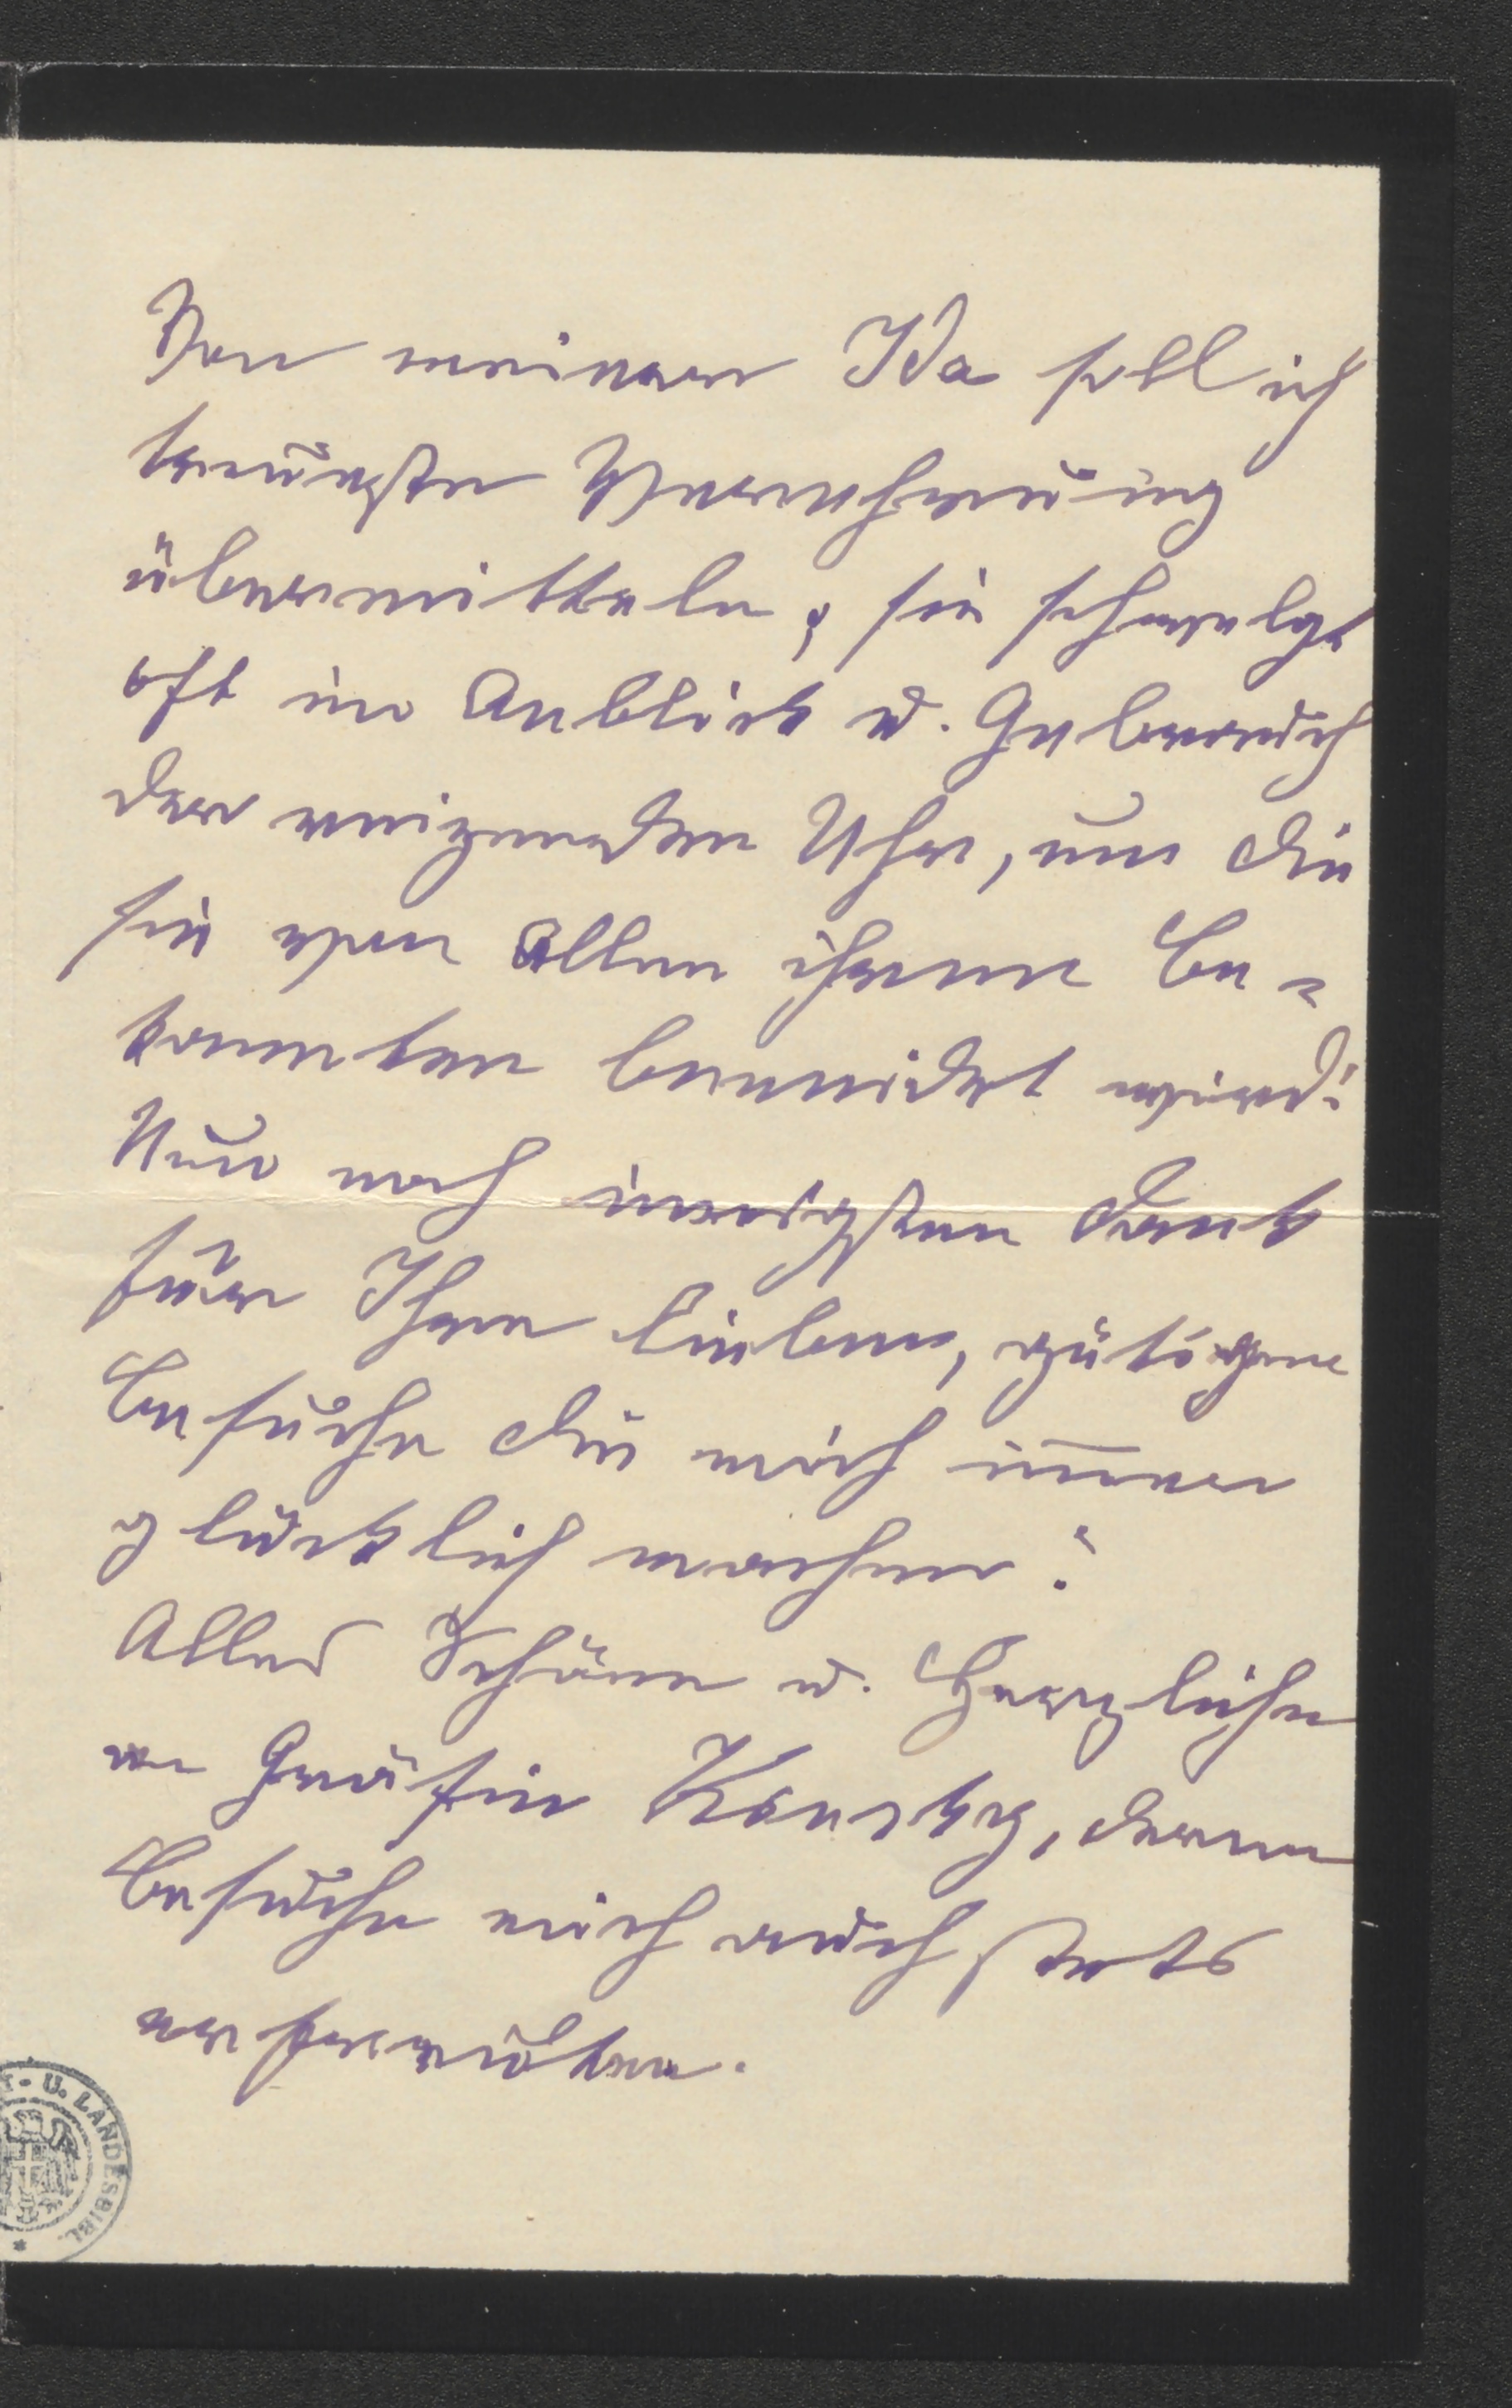 Von meiner Ida soll ich
treueste Verehrung
übermitteln, sie schwelgt
oft im Anblick u. Gebrauch
der reizenden Uhr, um die
sie von Allen ihren Be-
kannten beneidet wird!
Nun noch innigsten Dank
für Ihre lieben, gütigen
Besuche die mich im̅er
glücklich machen!
Alles Schöne u. Herzliche
an Gräfin Kinsky, deren
Besuche mich auch stets
erfreuten.
T- U. LANDESBIBL. *